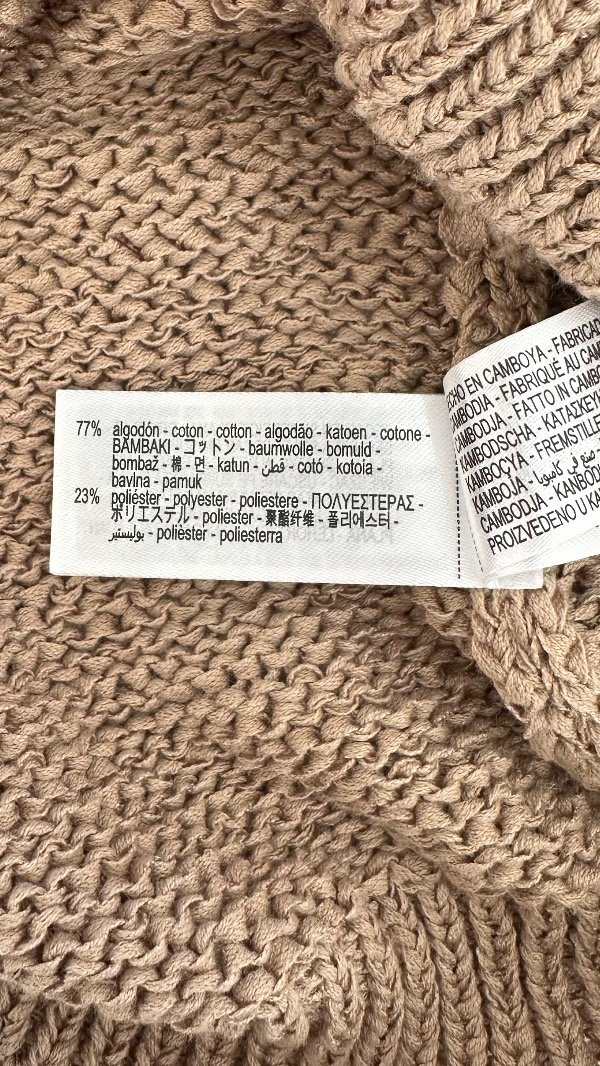 77% algodón - coton - cotton - algodão - katoen - cotone -
BAMBAKI - コットン - baumwolle - bomuld -
bombaž - 棉 - 면 - katun - قطن - cotó - kotoia -
bavlna - pamuk
23% poliéster - polyester - poliestere - ΠΟΛΥΕΣΤΕΡΑΣ -
ポリエステル - poliester - 聚酯纤维 - 폴리에스터 -
بوليستير - polièster - poliesterra
ECHO EN CAMBOYA - FABRICAD
MBODIA - FABRIQUÉ AU CAM
CAMBODJA - FATTO IN CAMBO
KAMBODSCHA - ΚΑΤΑΣΚΕΥ
KAMBOÇYA - FREMSTILLE
KAMBOJA - صنع في كامبوديا
CAMBODJA - KANBOD
PROIZVEDENO U KA